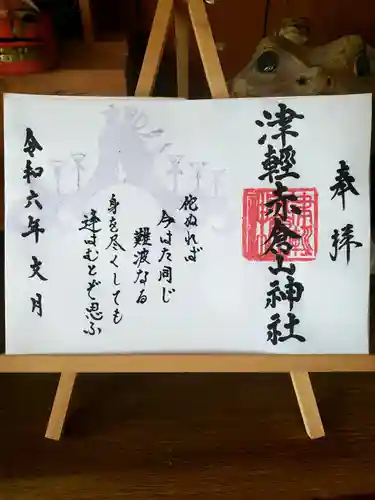 奉拝
津軽赤倉山神社
侘ぬれば
今はた同じ
難波なる
身を尽くしても
逢はむとぞ思ふ
令和六年文月